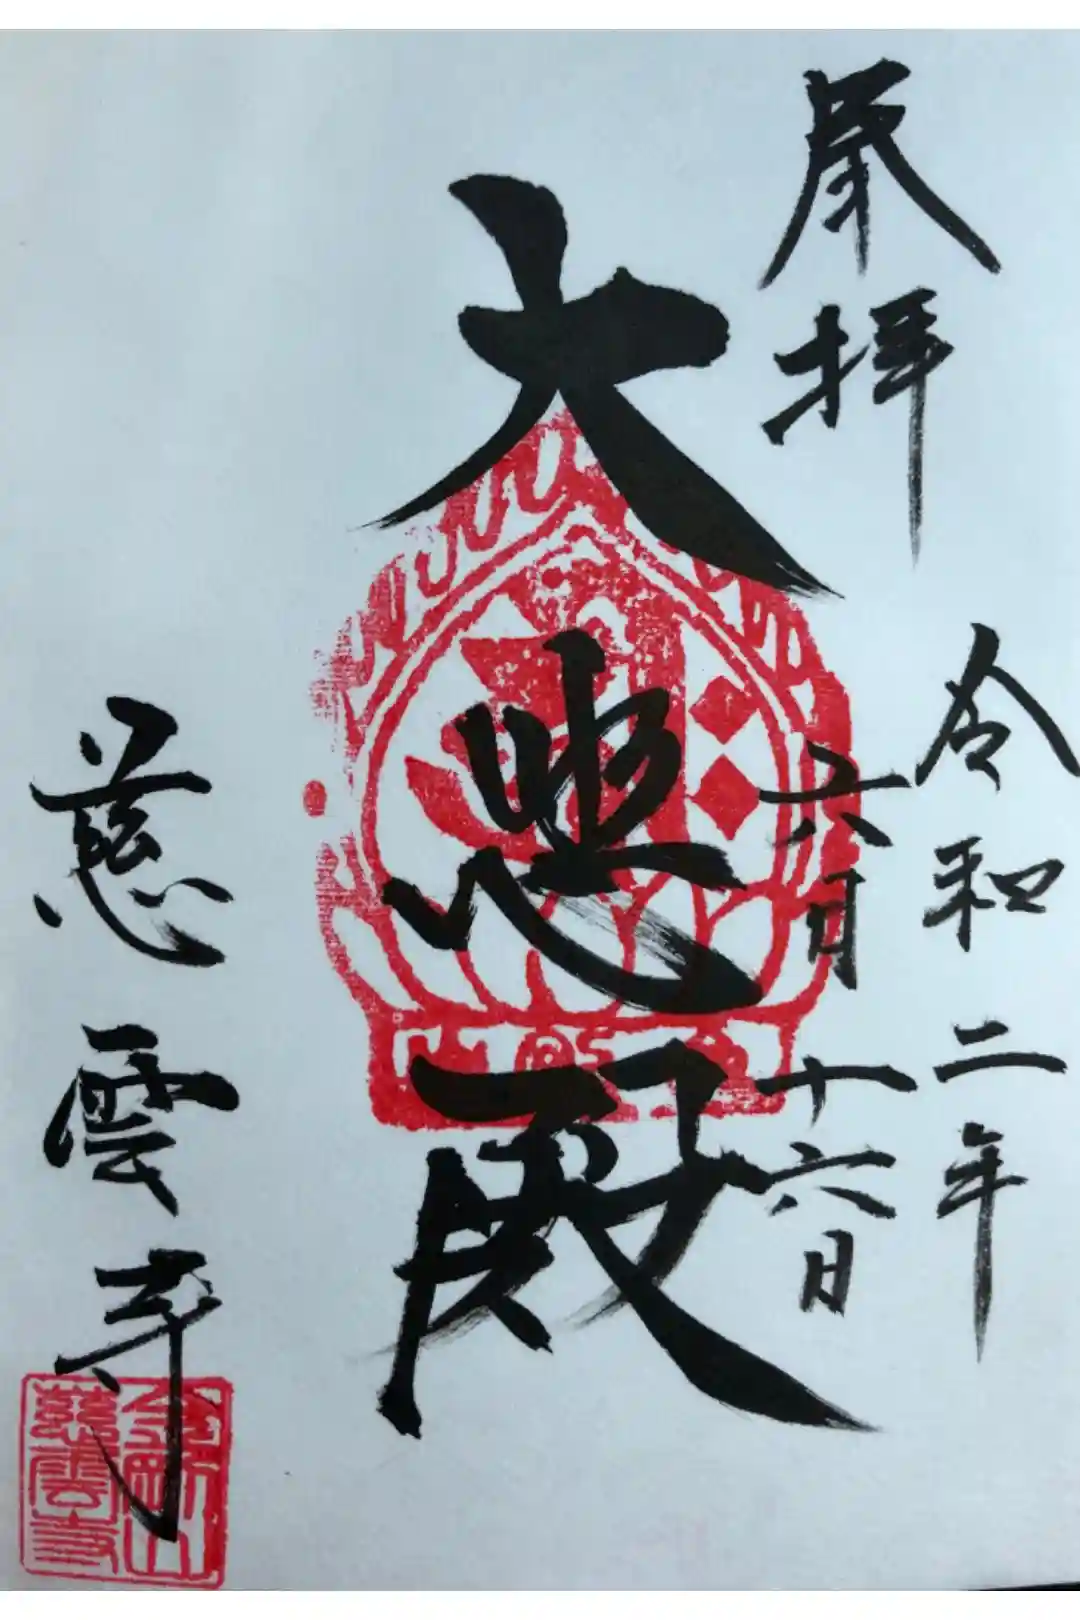 奉拝
令和二年
六月十六日
大悲殿
慈雲寺
慈雲寺